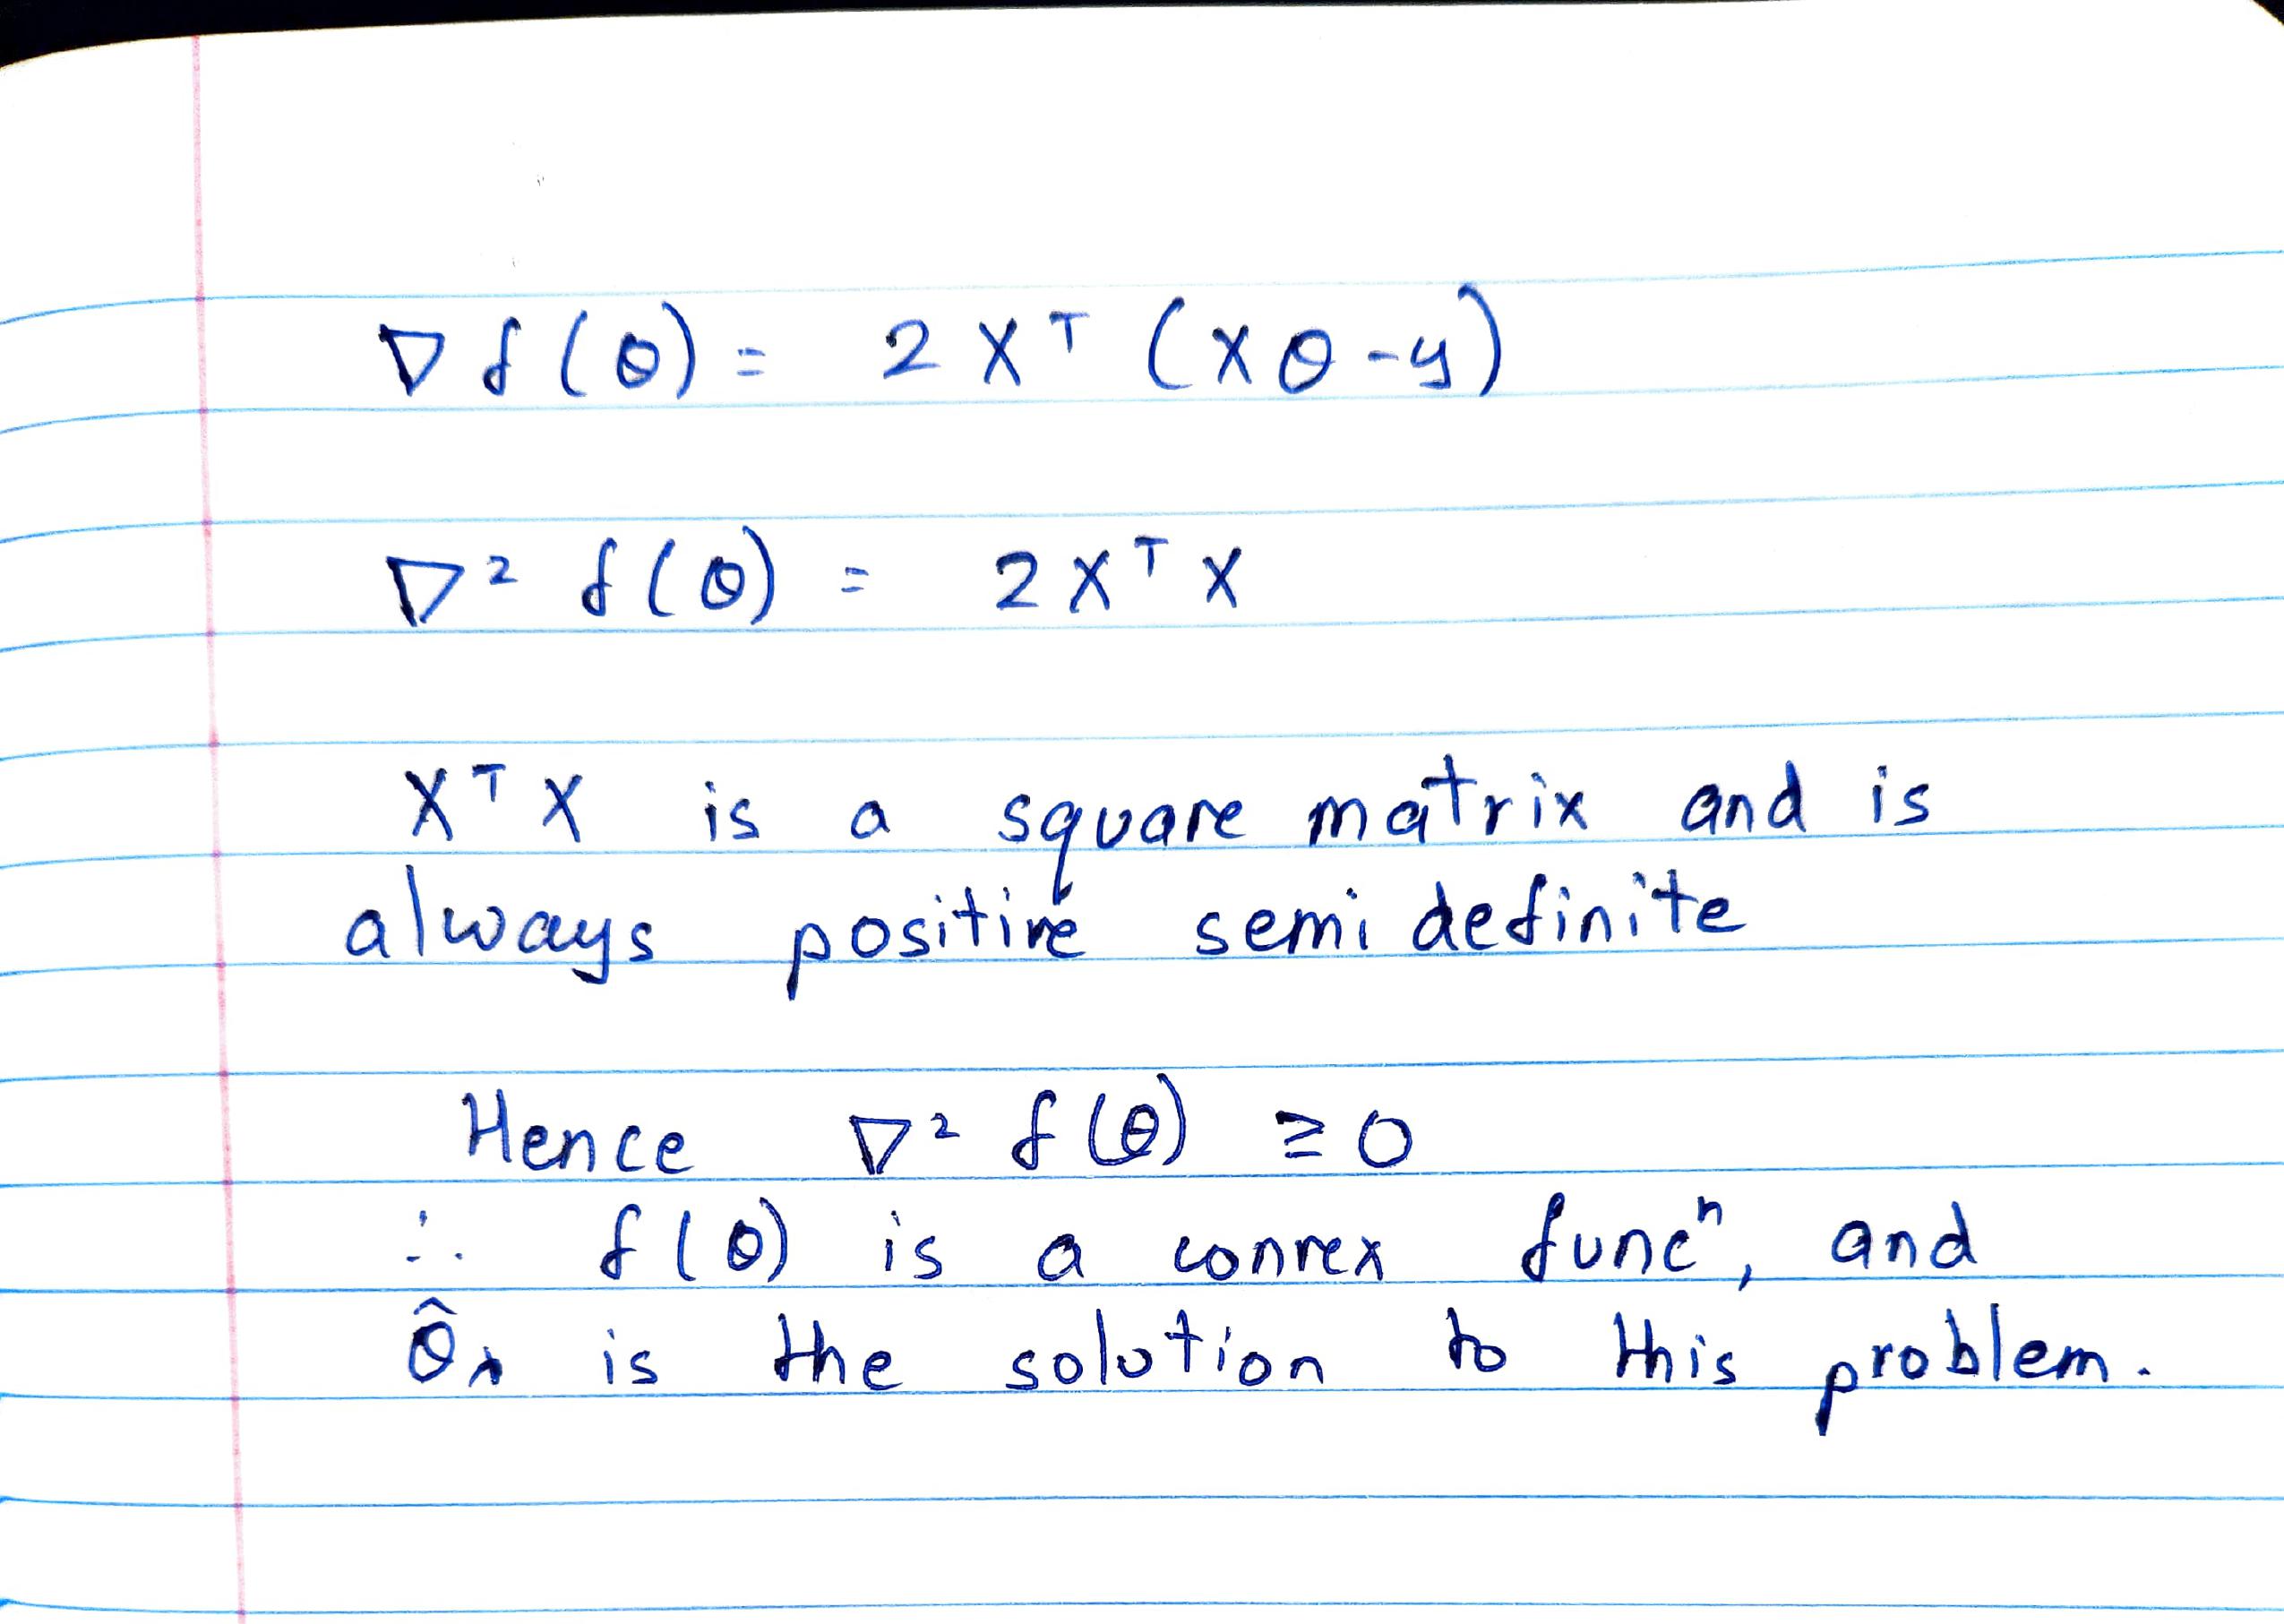 ∇ f(θ) = 2 Xᵀ (Xθ - y)
∇² f(θ) = 2 Xᵀ X
Xᵀ X is a square matrix and is
always positive semi definite
Hence ∇² f(θ) ≥ 0
∴ f(θ) is a convex funcⁿ, and
θ̂λ is the solution to this problem.